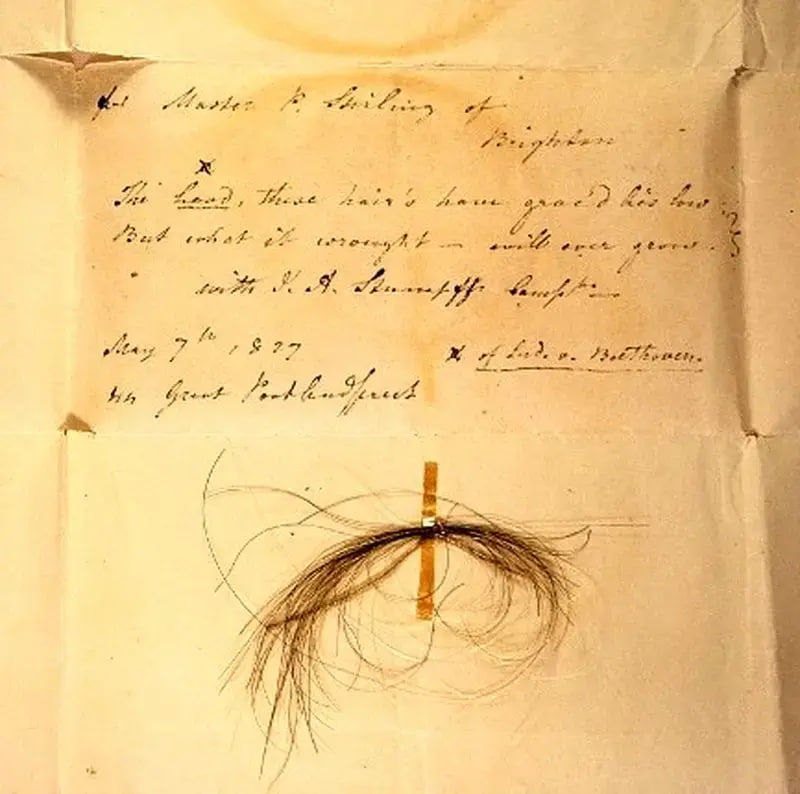 for Master P. Stirling of
Brighton
x
The head, these hair's have grac'd lies low
But what it wrought — will ever grow.
with J. A. Stumpff's Compts
May 7th 1827
x of Lud. v. Beethoven.
Great Portlandstreet